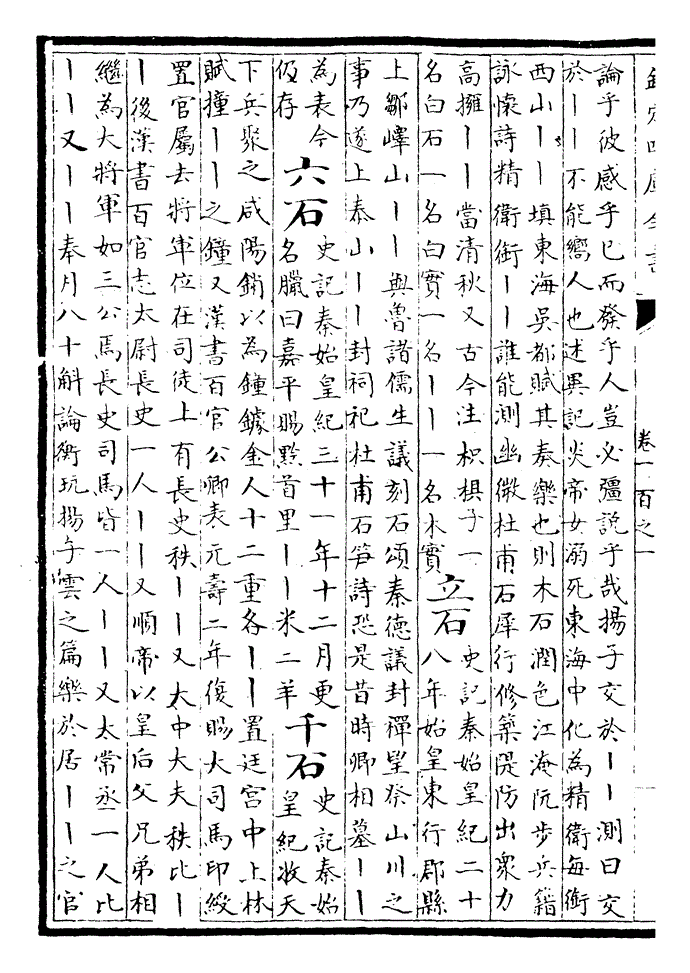 欽定四庫全書 卷一百之一
論乎彼感乎已而發乎人豈必彊說乎哉揚子交於丨丨測曰交
於丨丨不能嚮人也述異記炎帝女溺死東海中化為精衛每銜
西山丨丨填東海吳都賦其奏樂也則木石潤色江淹阮步兵籍
詠懷詩精衛銜丨丨誰能測幽微杜甫石犀行修築隄防出衆力
高擁丨丨當清秋又古今注枳椇子一
名白石一名白實一名丨丨一名木實
立石
史記秦始皇紀二十
八年始皇東行郡縣
上鄒嶧山丨丨與魯諸儒生議刻石頌秦德議封禪望祭山川之
事乃遂上泰山丨丨封祠祀杜甫石笋詩恐是昔時卿相墓丨丨
為表今
仍存
六石
史記秦始皇紀三十一年十二月更
名臘曰嘉平賜黔首里丨丨米二羊
千石
史記秦始
皇紀收天
下兵聚之咸陽銷以為鐘鐻金人十二重各丨丨置廷宮中上林
賦撞丨丨之鐘又漢書百官公卿表元壽二年復賜大司馬印綬
置官屬去將軍位在司徒上有長史秩丨丨又太中大夫秩比丨
丨後漢書百官志太尉長史一人丨丨又順帝以皇后父兄弟相
繼為大將軍如三公焉長史司馬皆一人丨丨又太常丞一人比
丨丨又丨丨奉月八十斛論衡玩揚子雲之篇樂於居丨丨之官